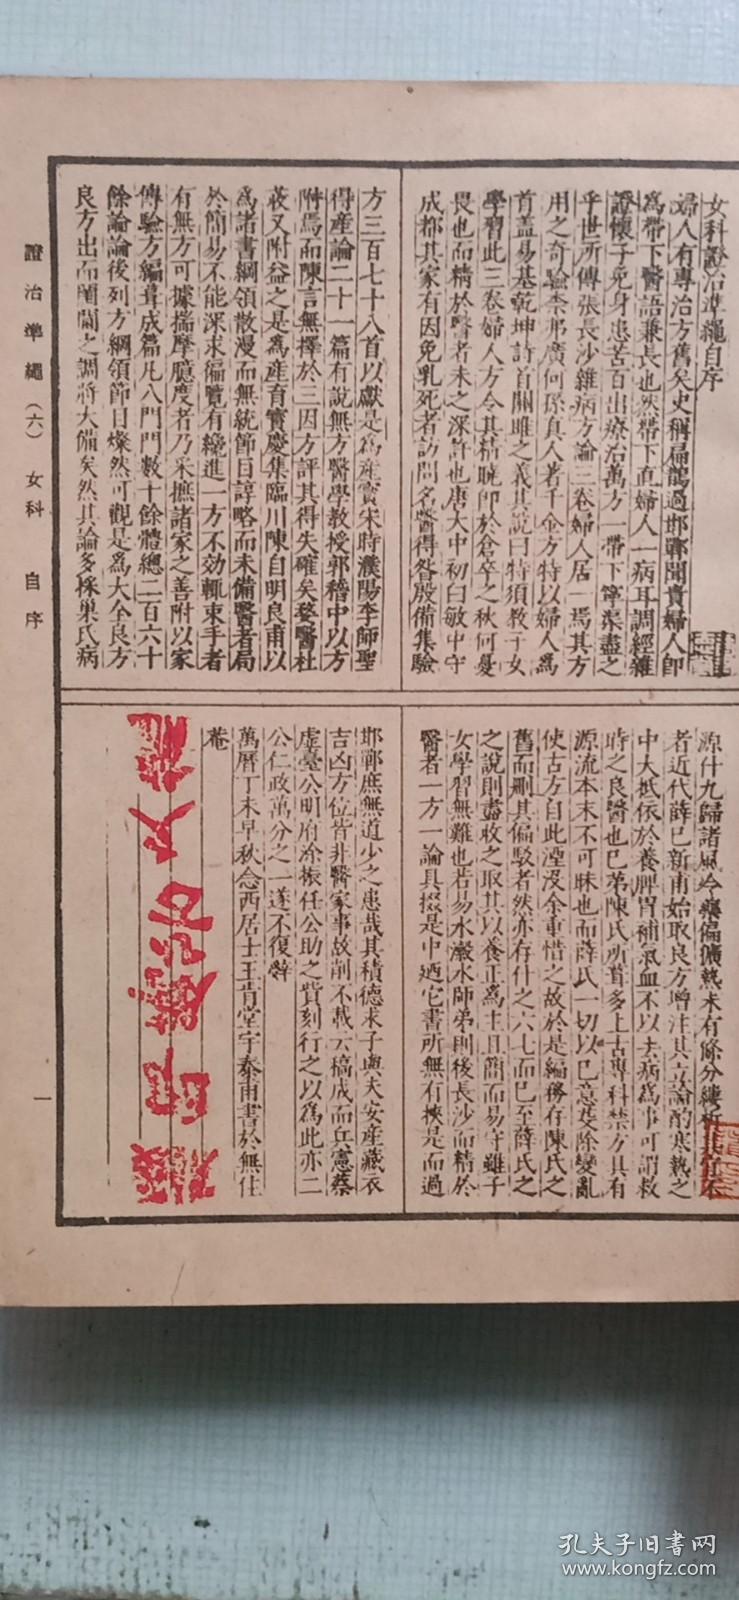 女科證治準繩自序
婦人有專治方舊矣史稱扁鵲過邯鄲聞貴婦人即
爲帶下醫語兼長也然帶下直婦人一病耳調經雜
證懷子免身患苦百出療治萬方一帶下寧渠盡之
乎世所傳張長沙雜病方論三卷婦人居一焉其方
用之奇驗柰弗廣何孫真人著千金方特以婦人爲
首蓋易基乾坤詩首關雎之義其說曰特須教子女
學習此三卷婦人方令其精曉即於倉卒之秋何憂
畏也而精於醫者未之深許也唐大中初白敏中守
成都其家有因免乳死者訪問名醫得昝殷備集驗
方三百七十八首以獻是爲產寶宋時濮陽李師聖
得產論二十一篇有說無方醫學教授郭稽中以方
附焉而陳言無擇於三因方評其得失確矣婺醫杜
荍又附益之是爲產育寶慶集臨川陳自明良甫以
爲諸書綱領散漫而無統節目諄略而未備醫者局
於簡易不能深求徧覽有纔進一方不効輒束手者
有無方可據揣摩臆度者乃采摭諸家之善附以家
傳驗方編葺成篇凡八門門數十餘體總二百六十
餘論論後列方綱領節目燦然可觀是爲大全良方
良方出而閨閫之調將大備矣然其論多採巢氏病
源什九歸諸風冷藥偏獷熱未有條分縷析其宜不
者近代薛己新甫始取良方增注其立論酌寒熱之
中大抵依於養脾胃補氣血不以去病爲事可謂救
時之良醫也已弟陳氏所葺多上古專科禁方具有
源流本末不可昧也而薛氏一切以己意芟除變亂
使古方自此湮沒余重惜之故於是編務存陳氏之
舊而刪其偏駁者然亦存什之六七而已至薛氏之
之說則盡收之取其以養正爲主且簡而易守雖子
女學習無難也若易水瀫水師弟則後長沙而精於
醫者一方一論具掇是中迺它書所無有挾是而過
邯鄲庶無道少之患哉其積德求子與夫安產藏衣
吉凶方位皆非醫家事故削不載云稿成而兵憲蔡
虛臺公明府涂振任公助之貲刻行之以爲此亦二
公仁政萬分之一遂不復辤
萬曆丁未早秋念西居士王肯堂宇泰甫書於無住
菴
證治準繩（六）女科 自序
一
孔夫子旧书网
www.kongfz.com